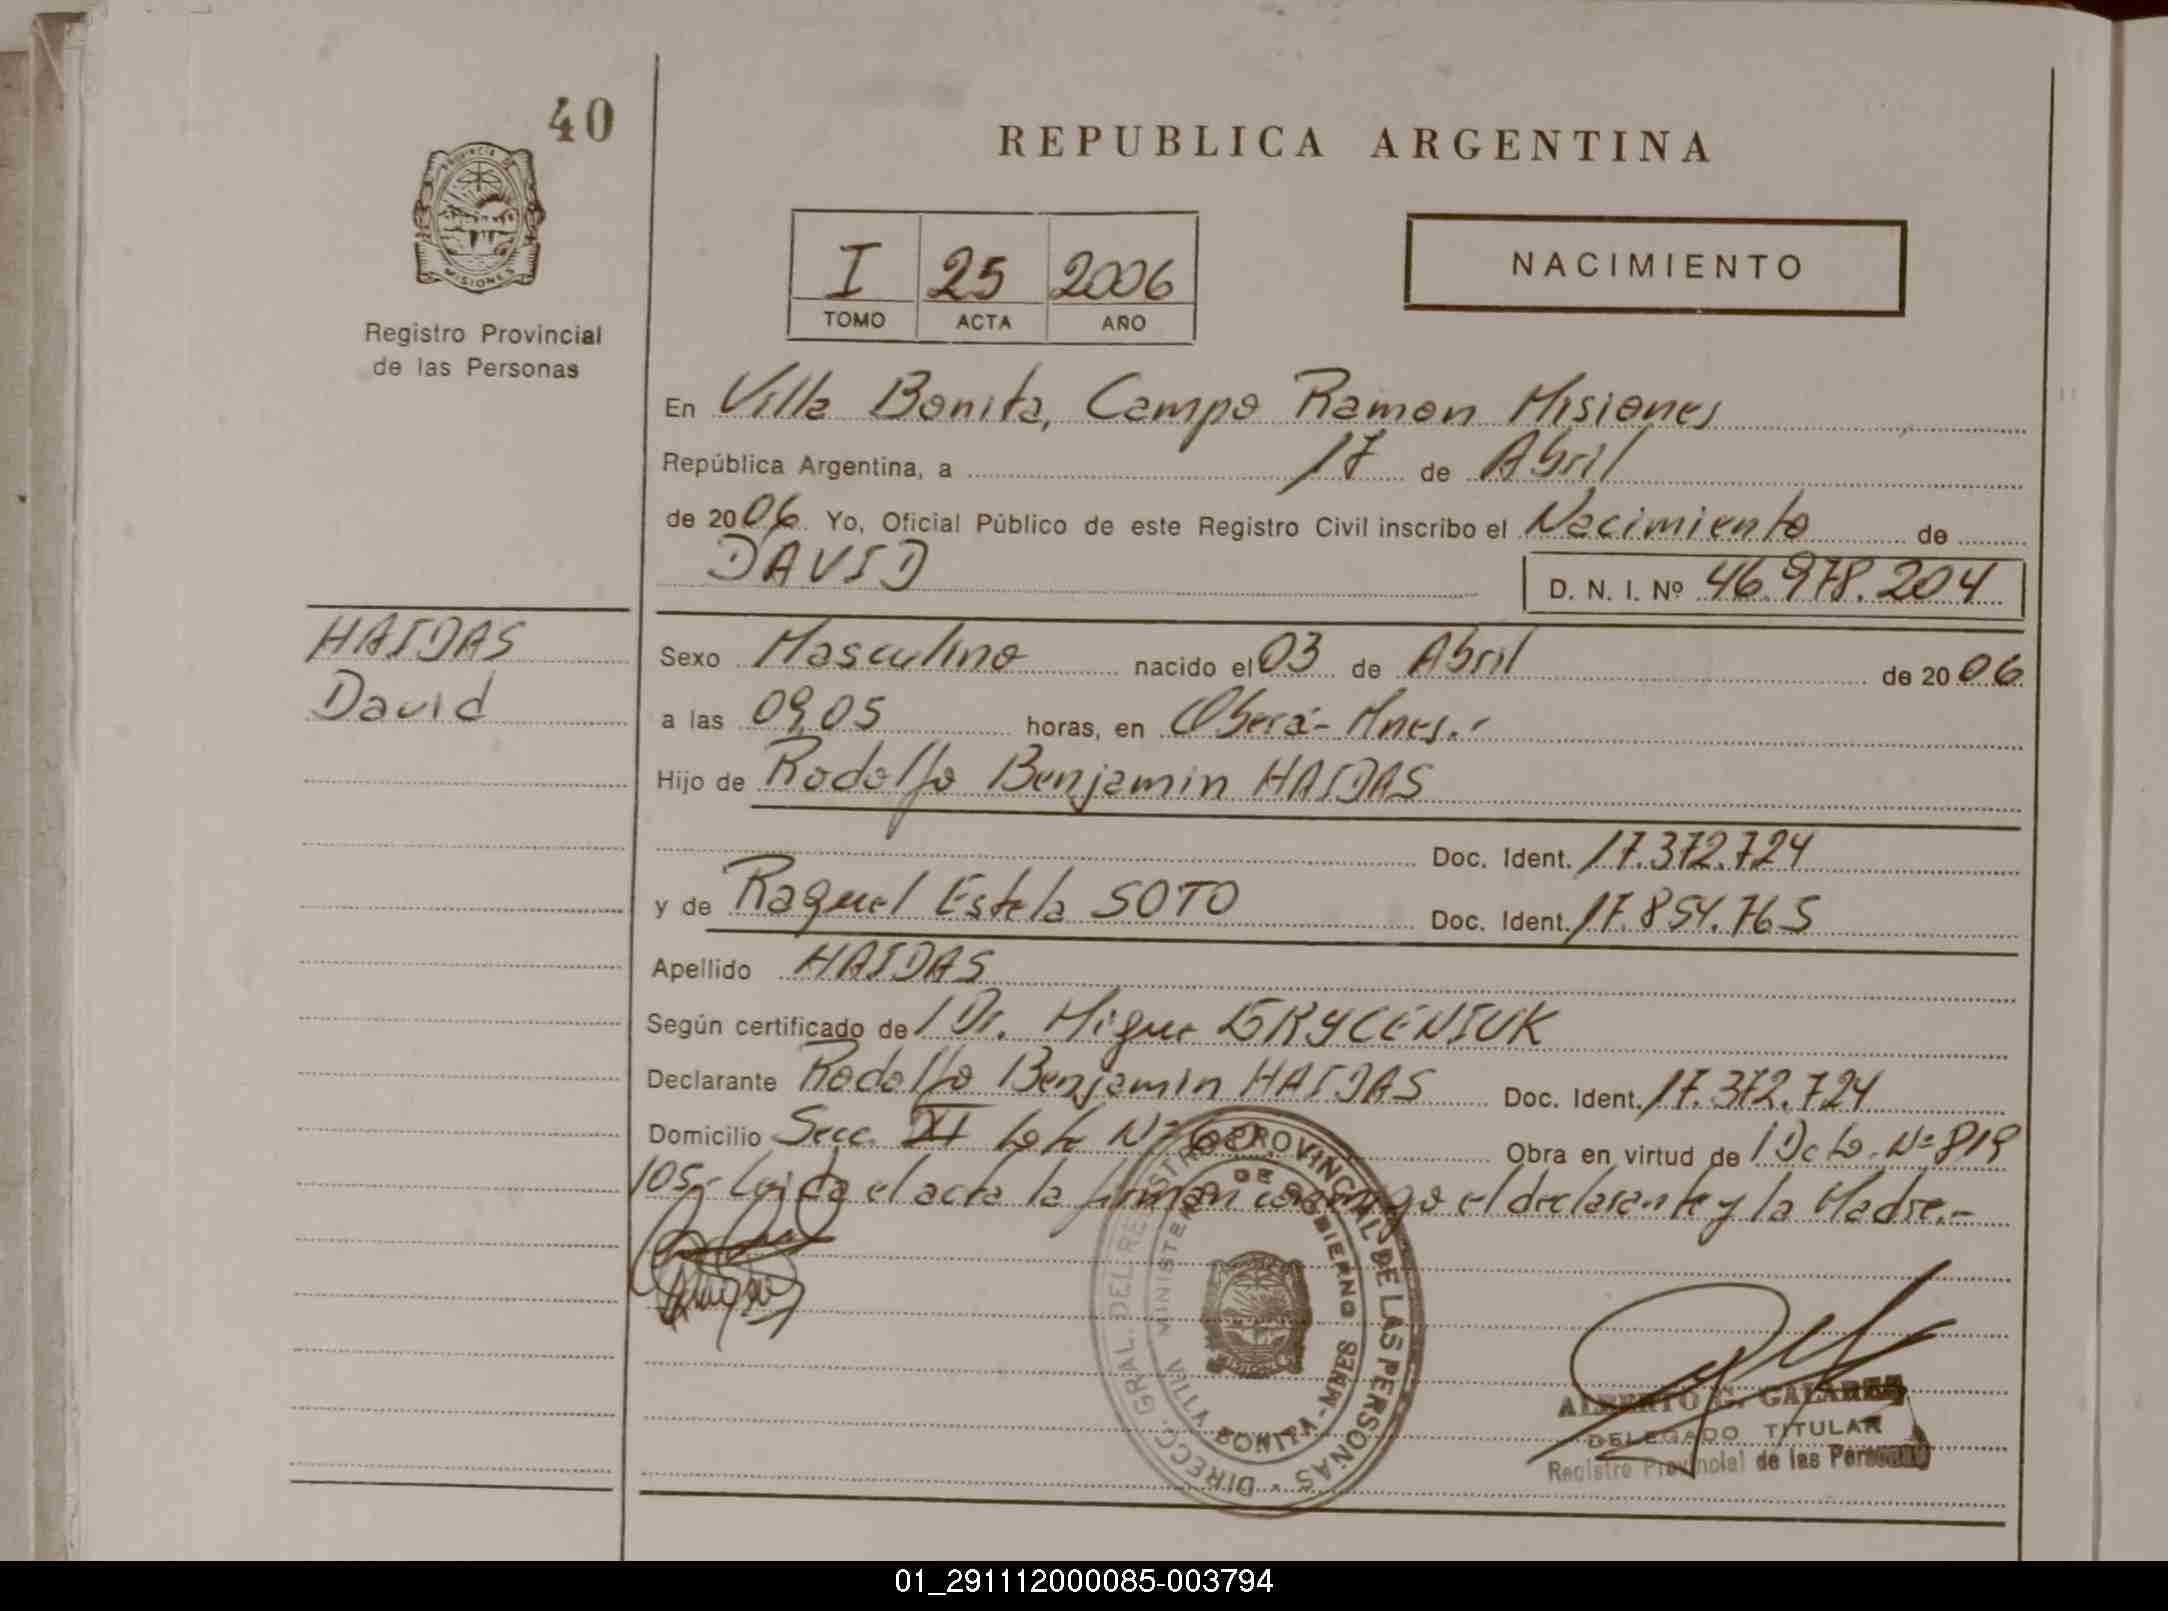 40
PROVINCIA DE
MISIONES
Registro Provincial
de las Personas
REPUBLICA ARGENTINA
I 25 2006
TOMO ACTA AÑO
NACIMIENTO
En Villa Bonita, Campo Ramon Misiones
República Argentina, a 17 de Abril
de 2006 Yo, Oficial Público de este Registro Civil inscribo el Nacimiento de
DAVID
D. N. I. Nº 46.978.204
HAIDAS
David
Sexo Masculino nacido el 03 de Abril de 2006
a las 09,05 horas, en Oberá-Mnes.
Hijo de Rodolfo Benjamin HAIDAS
Doc. Ident. 17.372.724
y de Raquel Estela SOTO Doc. Ident. 17.854.765
Apellido HAIDAS
Según certificado de / Dr. Miguel
Declarante Rodolfo Benjamin HAIDAS Doc. Ident. 17.372.724
Domicilio Secc. XI Lote Nº Obra en virtud de / Dcto. Nº 819
/05,- Leida el acta la firman conmigo el declarante y la Madre.-
DIRECC. GRAL. DEL REGISTRO PROVINCIAL DE LAS PERSONAS
MINISTERIO DE GOBIERNO
VILLA BONITA - MNES
ALBERTO C.
DELEGADO TITULAR
Registro Provincial de las Personas
01_291112000085-003794